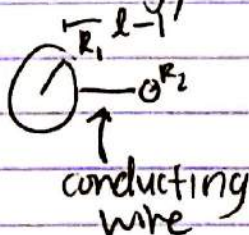 l
R₁
R₂
conducting
wire